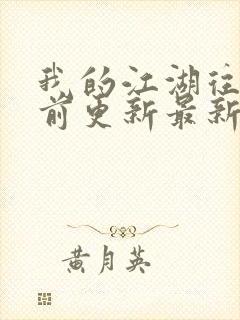 我的江湖往
前更新最新
黄月英